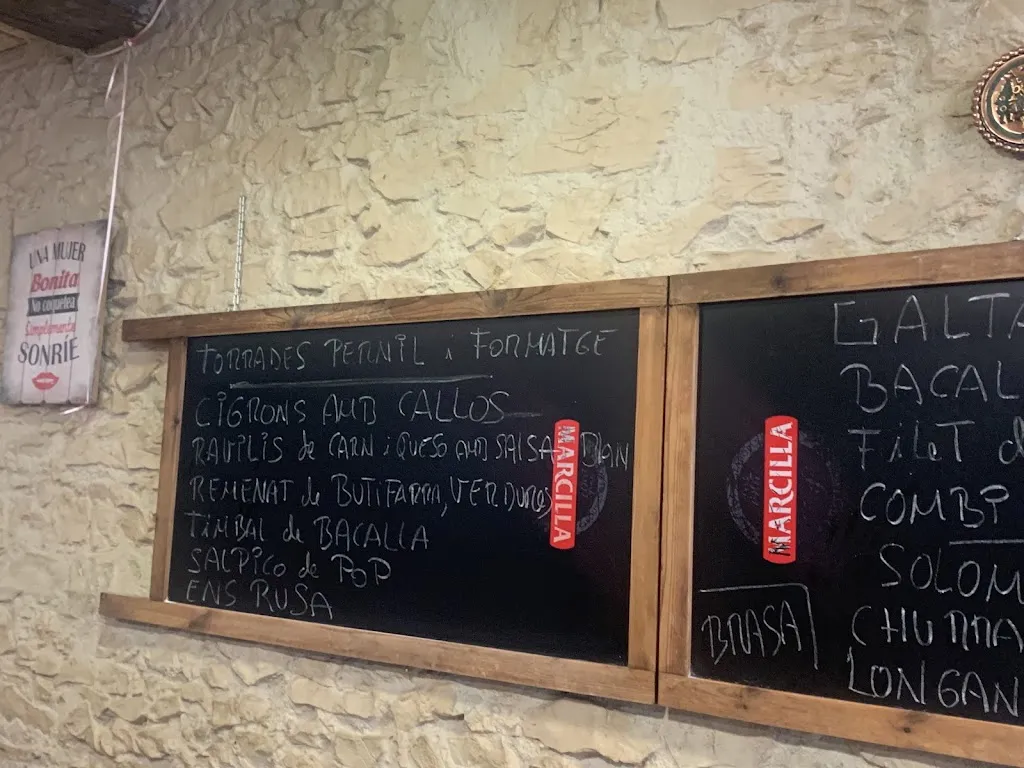 UNA MUJER
Bonita
No coquetea
Simplemente
SONRÍE
TORRADES PERNIL i FORMATGE
CIGRONS AMB CALLOS
RAVILIS de CARN i QUESO AMB SALSA
REMENAT de BUTIFARRA, VERDURES
TIMBAL de BACALLA
SALPICO de POP
ENS RUSA
MARCILLA
GALTA
BACAL
FILET d
COMBI
SOLOM
CHURRA
LONGAN
BRASA
MARCILLA